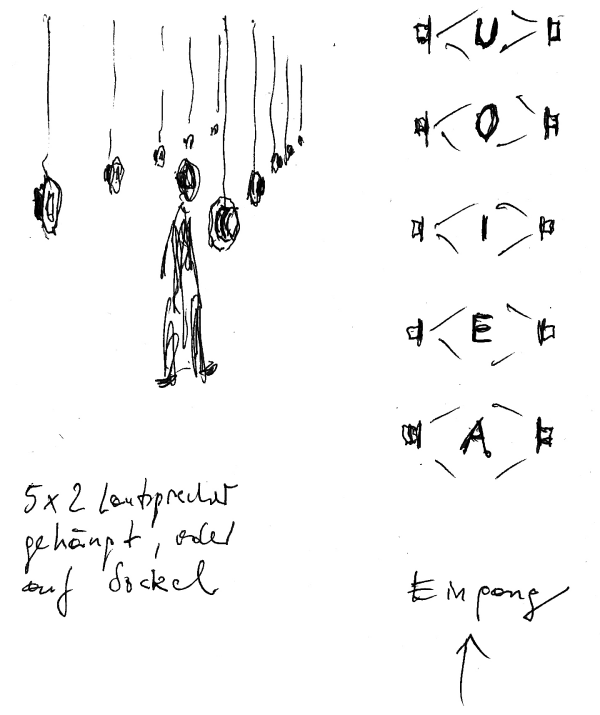 U
O
I
E
A
5x2 Lautsprecher
gehängt, oder
auf Sockel
Eingang